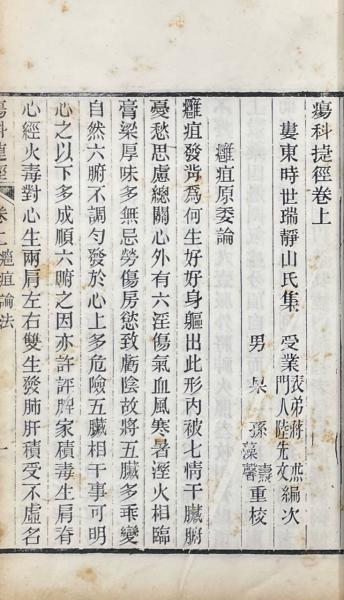 瘍科捷徑卷上
婁東時世瑞靜山氏集 受業 表弟蔣杰 門人陸先文 編次
男杲 孫 壽 藻馨 重校
癰疽原委論
癰疽發背爲何生好好身軀出此形內被七情干臟腑
憂愁思慮總關心外有六淫傷氣血風寒暑溼火相臨
膏粱厚味多無忌勞傷房慾致虧陰故將五臟多乖變
自然六腑不調勻發於心上多危險五臟相干事可明
心之以下多成順六腑之因亦許評脾家積毒生肩脊
心經火毒對心生兩肩左右雙生發肺肝積受不虛名
瘍科捷徑 卷上 癰疽論法 一